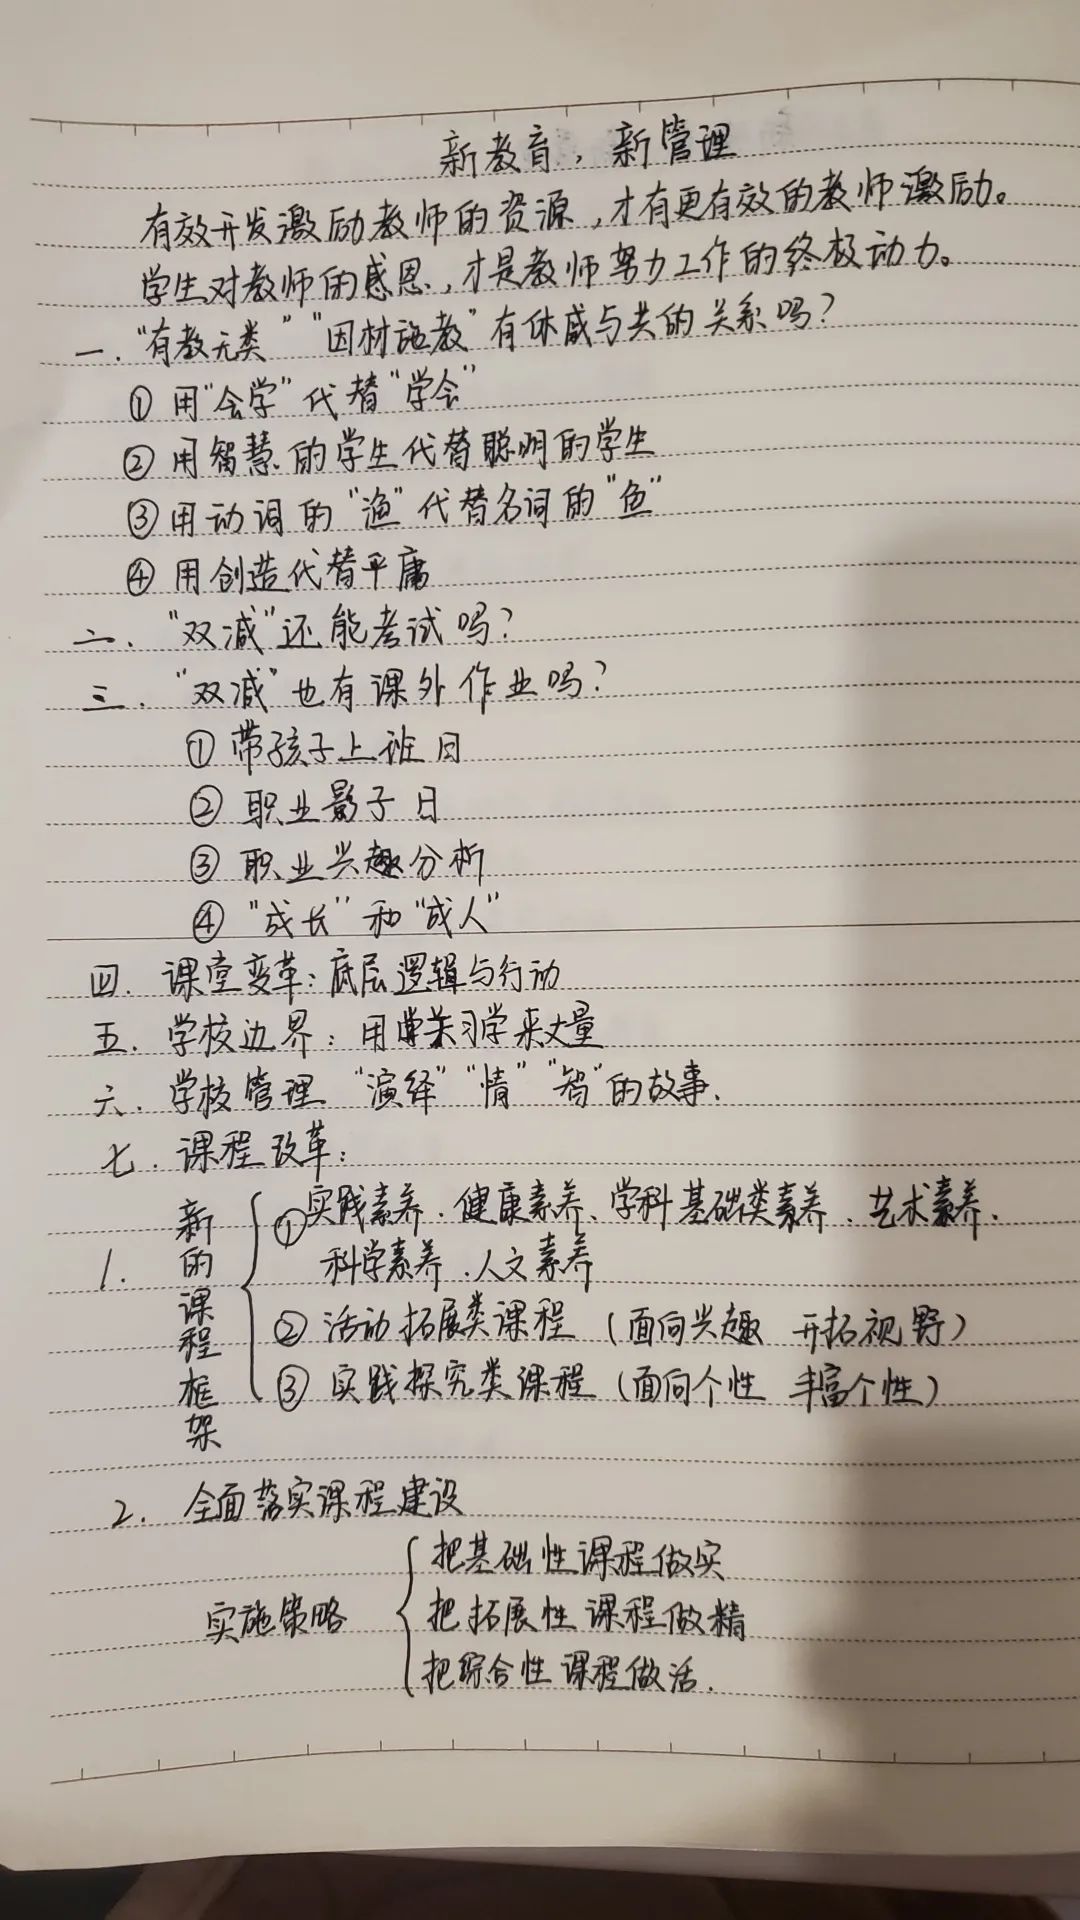 新教育，新管理
有效开发激励教师的资源，才有更有效的教师激励。
学生对教师的感恩，才是教师努力工作的终极动力。
一．“有教无类”“因材施教”有休戚与共的关系吗？
① 用“会学”代替“学会”
② 用智慧的学生代替聪明的学生
③ 用动词的“渔”代替名词的“鱼”
④ 用创造代替平庸
二．“双减”还能考试吗？
三．“双减”也有课外作业吗？
① 带孩子上班日
② 职业影子日
③ 职业兴趣分析
④ “成长”和“成人”
四．课堂变革：底层逻辑与行动
五．学校边界：用学来丈量
六．学校管理“演绎”“情”“智”的故事．
七．课程改革：
1．新的课程框架
①实践素养、健康素养、学科基础类素养、艺术素养、
科学素养、人文素养
② 活动拓展类课程（面向兴趣 开拓视野）
③ 实践探究类课程（面向个性 丰富个性）
2．全面落实课程建设
实施策略
把基础性课程做实
把拓展性课程做精
把综合性课程做活．